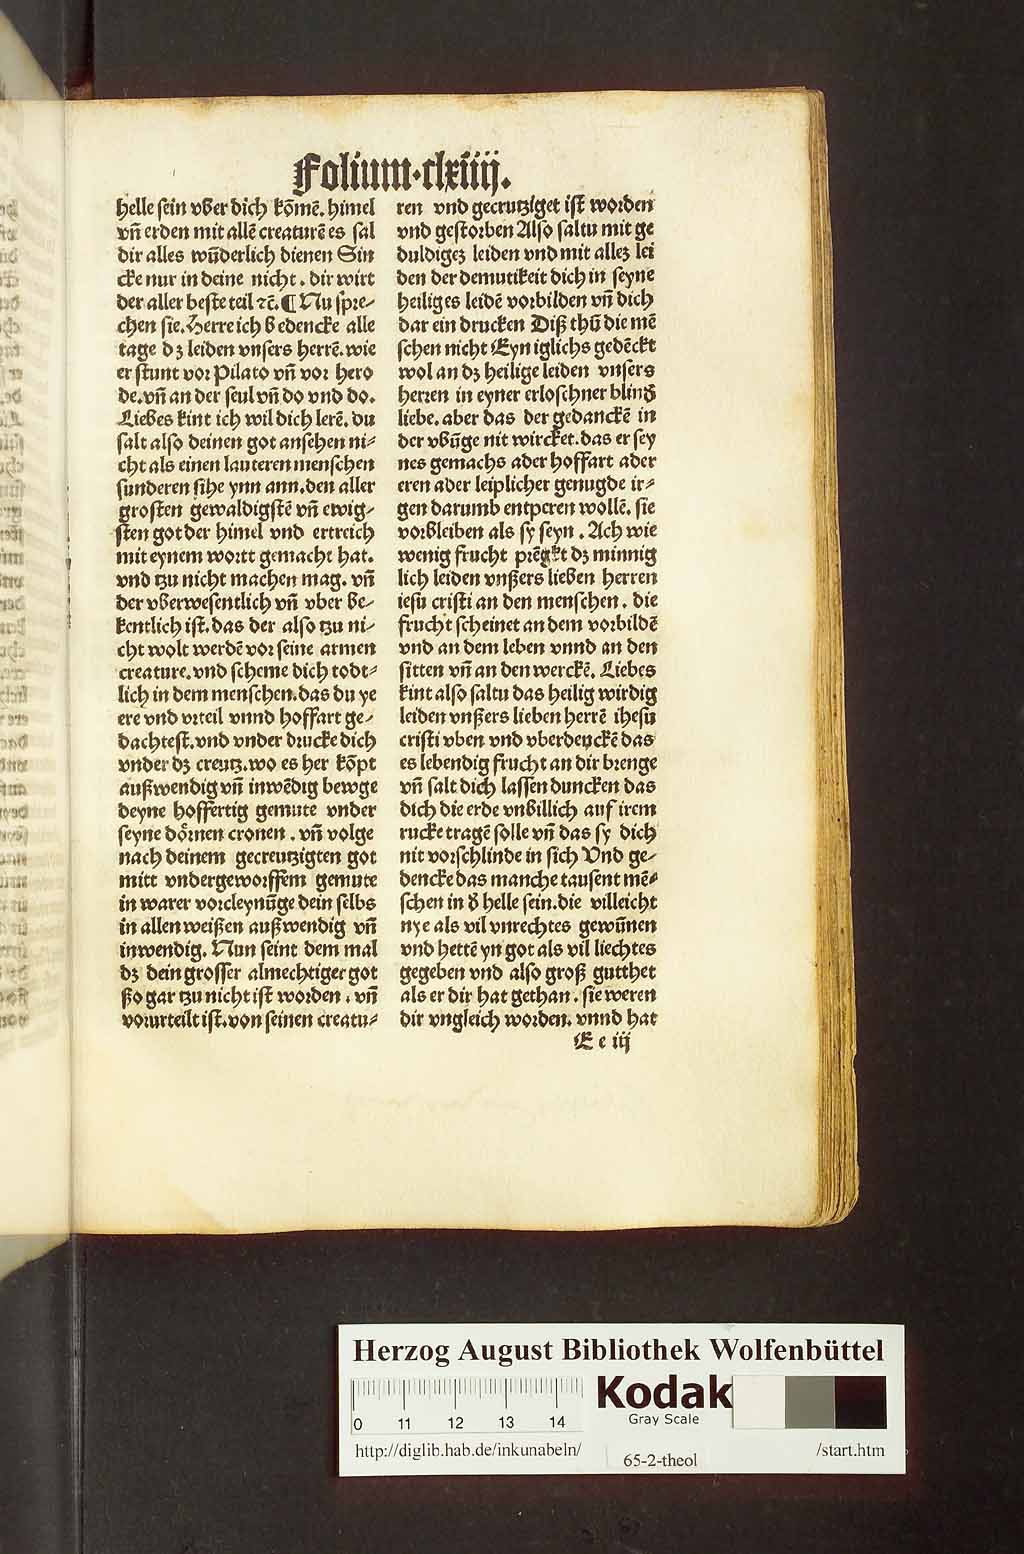 Folium·clxiiij.
helle sein vber dich kōmē. himel
vñ erden mit allē creaturē es sal
dir alles wūderlich dienen Sin
cke nur in deine nicht. dir wirt
der aller beste teil ⁊ē. ¶ Nu spre⸗
chen sie. Herre ich bedencke alle
tage dʒ leiden vnsers herrē. wie
er stunt vor Pilato vñ vor hero
de. vñ an der seul vñ do vnd do.
Liebes kint ich wil dich lerē. du
salt also deinen got ansehen ni⸗
cht als einen lauteren menschen
sunderen sihe ynn ann. den aller
grosten gewaldigstē vñ ewig⸗
sten got der himel vnd ertreich
mit eynem wortt gemacht hat.
vnd tzu nicht machen mag. vñ
der vberwesentlich vñ vber be⸗
kentlich ist. das der also tzu ni⸗
cht wolt werdē vor seine armen
creature. vnd scheme dich todt⸗
lich in dem menschen. das du ye
ere vnd vrteil vnnd hoffart ge⸗
dachtest. vnd vnder drucke dich
vnder dʒ creutz. wo es her kōpt
außwendig vñ inwēdig bewge
deyne hoffertig gemute vnder
seyne dörnen cronen. vñ volge
nach deinem gecreutzigten got
mitt vndergeworffem gemute
in warer vorcleynūge dein selbs
in allen weißen außwendig vñ
inwendig. Nun seint dem mal
dʒ dein grosser almechtiger got
ßo gar tzu nicht ist worden. vñ
vorurteilt ist. von seinen creatu⸗
ren vnd gecrutziget ist worden
vnd gestorben Also saltu mit ge
duldigeʒ leiden vnd mit alleʒ lei
den der demutikeit dich in seyne
heiliges leidē vorbilden vñ dich
dar ein drucken Diß thū die mē
schen nicht Eyn iglichs gedēckt
wol an dʒ heilige leiden vnsers
herren in eyner erloschner blinđ
liebe. aber das der gedanckē in
der vbūge nit wircket. das er sey
nes gemachs ader hoffart ader
eren ader leiplicher genugde ir⸗
gen darumb entperen wollē. sie
vorbleiben als sy seyn. Ach wie
wenig frucht prēgkt dʒ minnig
lich leiden vnßers lieben herren
iesu cristi an den menschen. die
frucht scheinet an dem vorbildē
vnd an dem leben vnnd an den
sitten vñ an den werckē. Liebes
kint also saltu das heilig wirdig
leiden vnßers lieben herrē ihesu
cristi vben vnd vberdenckē das
es lebendig frucht an dir brenge
vñ salt dich lassen duncken das
dich die erde vnbillich auf irem
rucke tragē solle vñ das sy dich
nit vorschlinde in sich Vnd ge⸗
dencke das manche tausent mē⸗
schen in đ helle sein. die villeicht
nye als vil vnrechtes gewūnen
vnd hettē yn got als vil liechtes
gegeben vnd also groß gutthet
als er dir hat gethan. sie weren
dir vngleich worden. vnnd hat
E e iij
Herzog August Bibliothek Wolfenbüttel
0 11 12 13 14
Kodak
Gray Scale
http://diglib.hab.de/inkunabeln/
65-2-theol
/start.htm